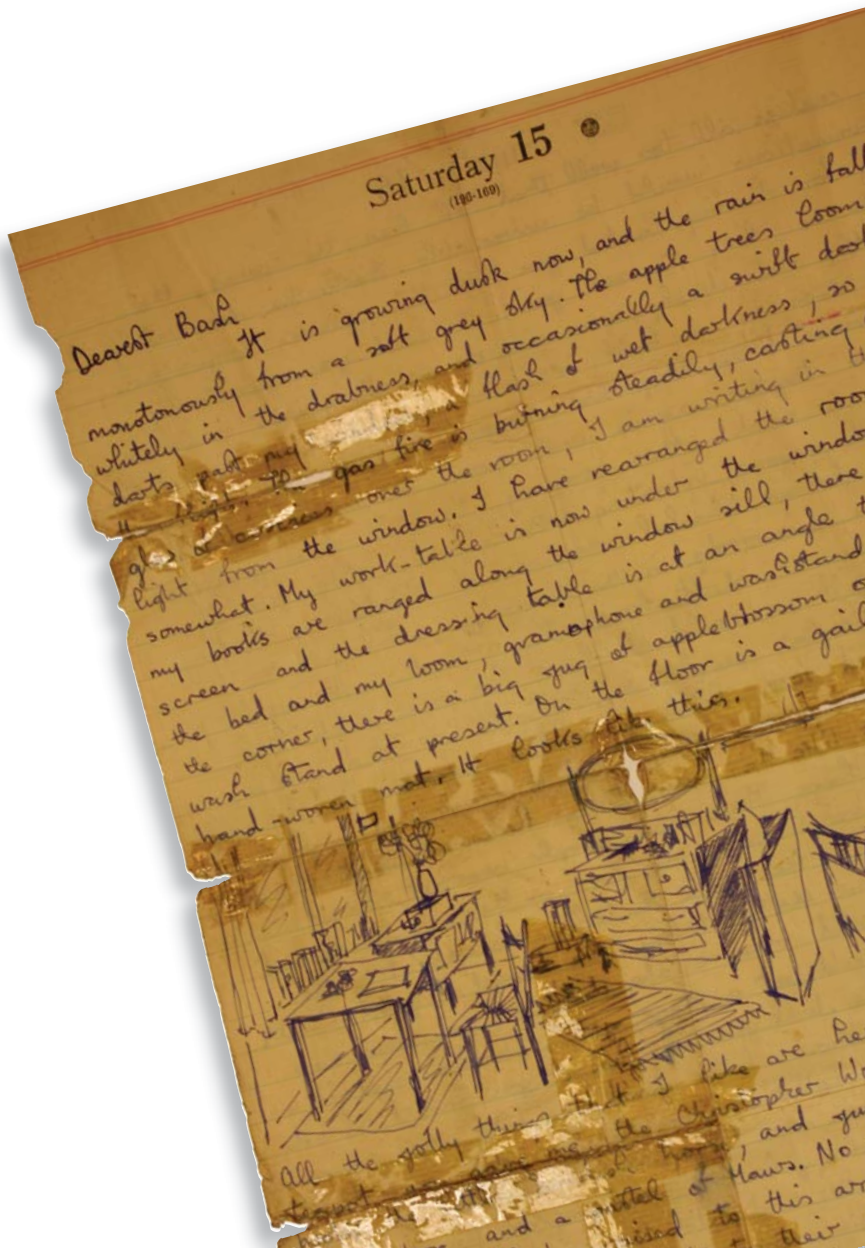 Saturday 15
(196-169)
Dearest Bash
It is growing dusk now, and the rain is fall
monotonously from a soft grey sky. The apple trees loom
whitely in the drabness, and occasionally a swift dar
darts past my a flash of wet darkness, so
gas fire is burning steadily, casting
glow of over the room, I am writing in t
light from the window. I have rearranged the roo
somewhat. My work-table is now under the windo
my books are ranged along the window sill, there
screen and the dressing table is at an angle t
the bed and my loom, gramophone and washstand
the corner, there is a big jug of appleblossom o
wash stand at present. On the floor is a gail
hand-woven mat. It looks like this.
All the jolly things that I like are he
teapot the Christopher Wr
horse, and ju
and a of Maws. No
to this ar
their